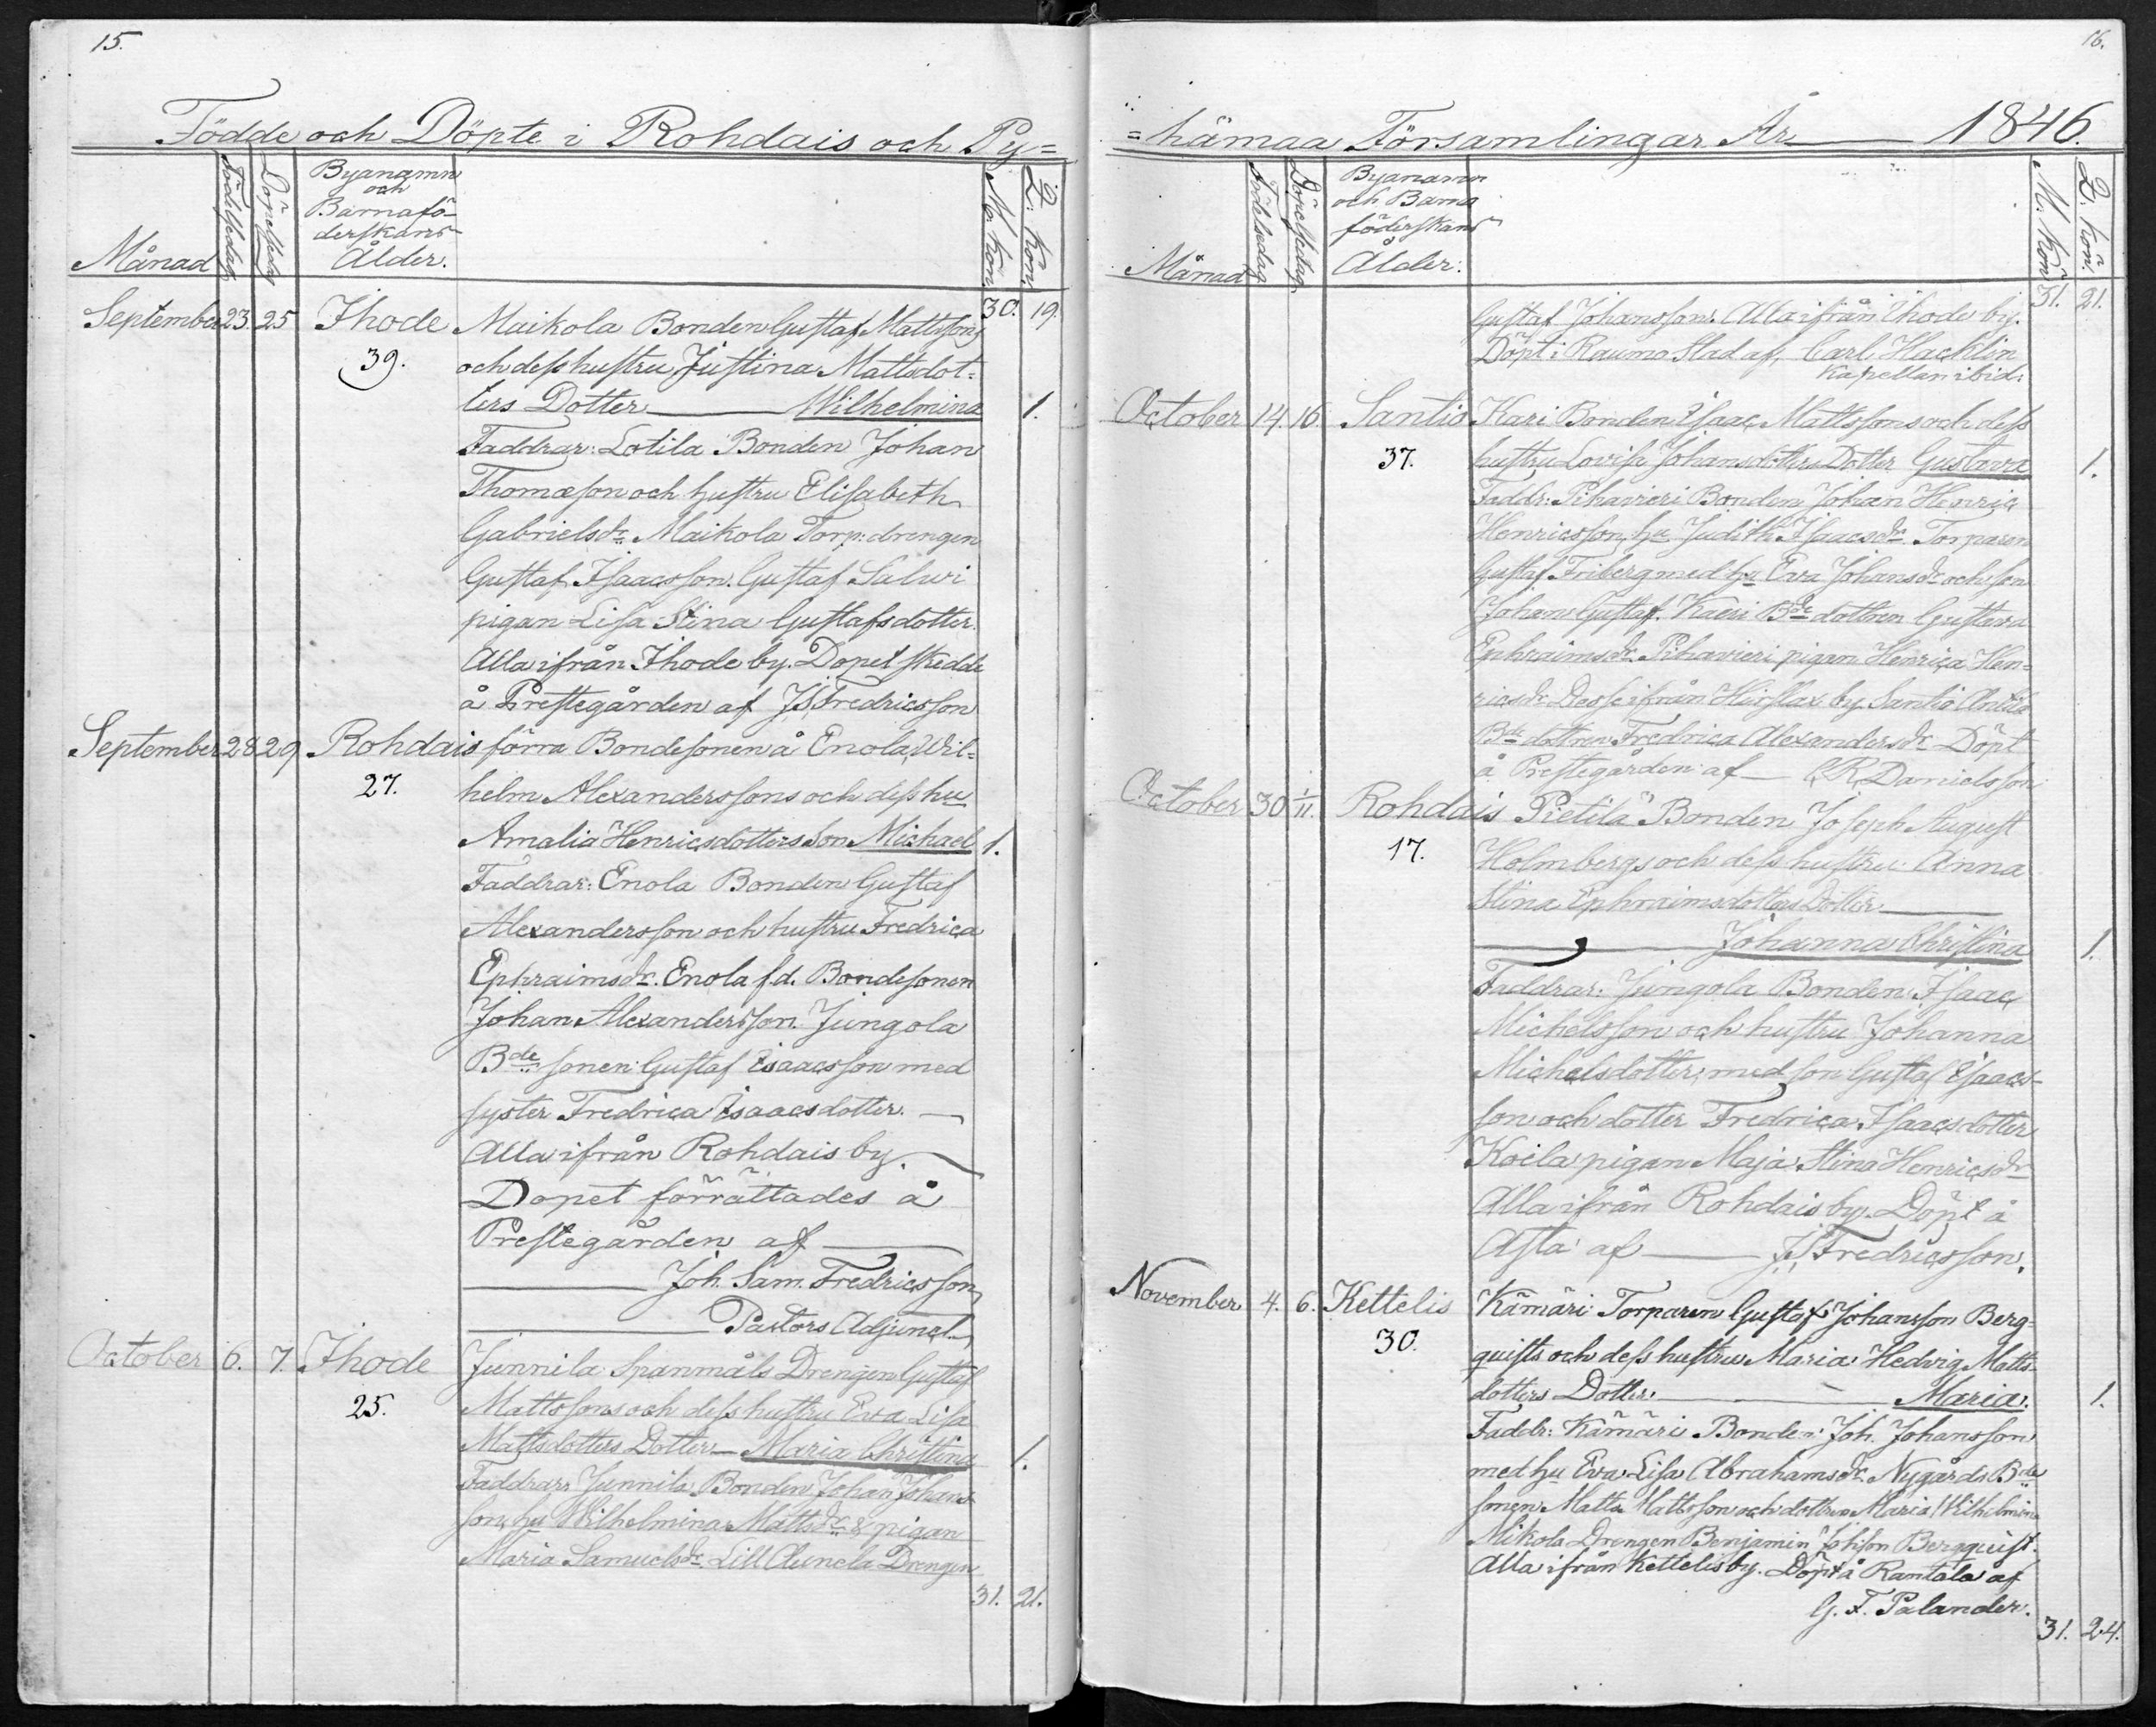 15.
Födde och Döpte i Rohdais och Py=
Månad
Födelsedag
Döpelsedag
Byanamn
och
Barnafö-
derskans
Ålder.
M. Kön.
Q. Kön.
30. 19.
September 23. 25 Ihode Maikola Bonden Gustaf Mattssons
39. och dess hustru Justina Mattsdot-
ters Dotter Wilhelmina 1.
Faddrar: Lotila Bonden Johan
Thomæson och hustru Elisabeth
Gabrielsdr. Maikola Torp: drengen
Gustaf Isaacsson. Gustaf Salvi
pigan Lisa Stina Gustafsdotter.
Alla ifrån Ihode by. Dopet skedde
å Prestegården af J S Fredricsson
September 28 29 Rohdais förra Bondesonen å Enola, Wil-
27. helm Alexanderssons och dess hu
Amalia Henricsdotters Son Michael 1.
Faddrar: Enola Bonden Gustaf
Alexandersson och hustru Fredrica
Ephraimsdr. Enola f.d. Bondesonen
Johan Alexandersson. Jungola
Bde sonen Gustaf Isaacsson med
syster Fredrica Isaacsdotter.
Alla ifrån Rohdais by.
Dopet förrättades å
Prestegården af
Joh. Sam. Fredricsson
Pastors Adjunct.
October 6. 7. Ihode Junnila Spanmåls Drengen Gustaf
25. Mattssons och dess hustru Eva Lisa
Mattsdotters Dotter Maria Christina 1.
Faddrar: Junnila Bonden Johan Johans-
son, hu Wilhelmina Mattsdr & pigan
Maria Samuelsdr. Lill Clunela Drengen
31. 21.
16.
=hämaa Församlingar År 1846.
Månad
Födelsedag
Döpelsedag
Byanamn
och Barna
föderskans
Ålder.
M. Kön
Q. Kön.
31. 21.
Gustaf Johansson. Alla ifrån Ihode by.
Döpt i Raumo Stad af, Carl Hacklin
Kapellan ibid:
October 14. 16. Santio Kari Bonden Isaac Mattssons och dess
37. hustru Lovisa Johansdotters Dotter Gustava 1.
Faddr: Pihavieri Bonden Johan Henric
Henricsson, hu Judith Isaacsdr. Torparen
Gustaf Friberg med hu Eva Johansdr och son
Johan Gustaf. Kaeri Bde dottren Gustava
Ephraimsdr. Pihavieri pigan Henrica Hen-
ricsdr Desse ifrån Hirslax by. Santio Anttila
Bde dottren Fredrica Alexandersdr. Döpt
å Prestegården af C R Danielsson
October 30 1/11. Rohdais Pietilä Bonden Joseph August
17. Holmbergs och dess hustru Anna
Stina Ephraimsdotters Dotter
Johanna Christina 1.
Faddrar: Jungola Bonden Isaac
Michelsson och hustru Johanna
Michelsdotter, med son Gustaf Isaacs-
son och dotter Fredrica Isaacsdotter
Koila pigan Maja Stina Henricsdr
Alla ifrån Rohdais by. Döpt å
Asta af J S Fredricsson.
November 4. 6. Kettelis Kämäri Torparen Gustaf Johansson Berg-
30. quists och dess hustru Maria Hedvig Matts-
dotters Dotter Maria. 1.
Faddr: Kämäri Bonden Joh. Johansson
med hu Eva Lisa Abrahamsdr. Nygårds Bde
sonen Matts Mattsson och dottren Maria Wilhelmina
Mikola Drengen Benjamin Johsson Bergquist.
Alla ifrån Kettelis by. Döpt å Rantala af
G. F. Palander.
31. 24.